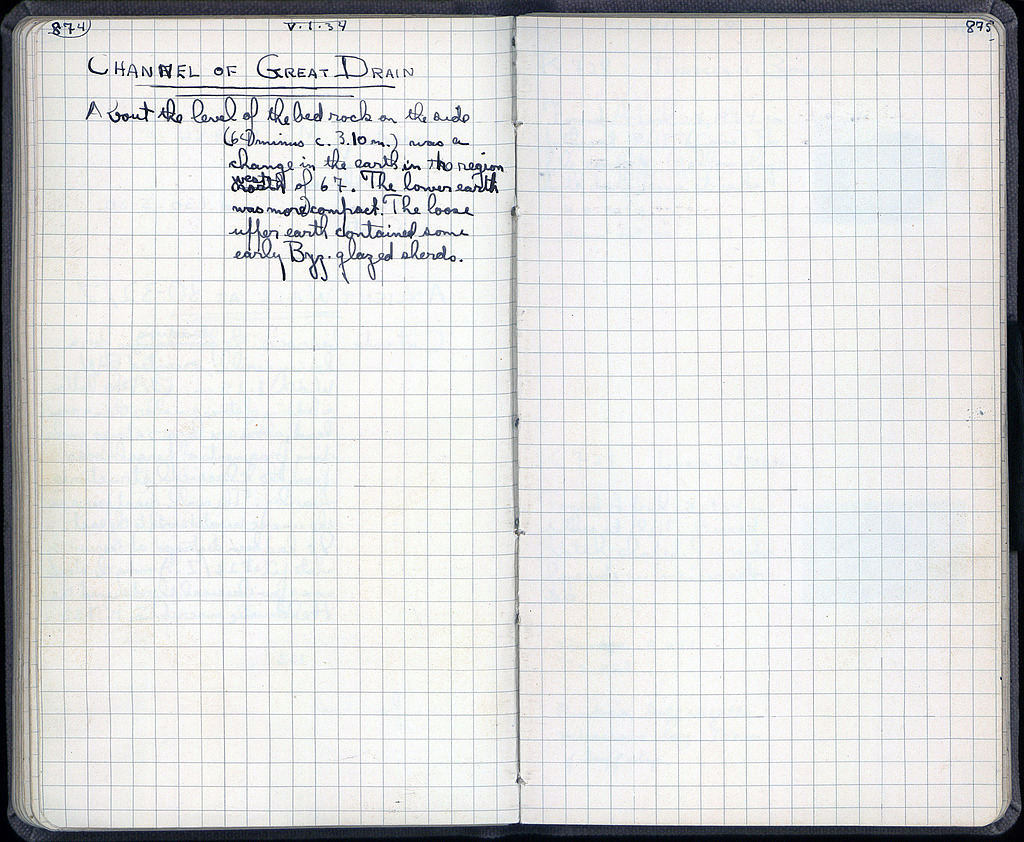 874
V.1.34
875
CHANNEL OF GREAT DRAIN
About the level of the bed rock on the side
(64) minus c. 3.10 m.) was a
change in the earth in the region
west of 67. The lower earth
was more compact. The loose
upper earth contained some
early Byz. glazed sherds.